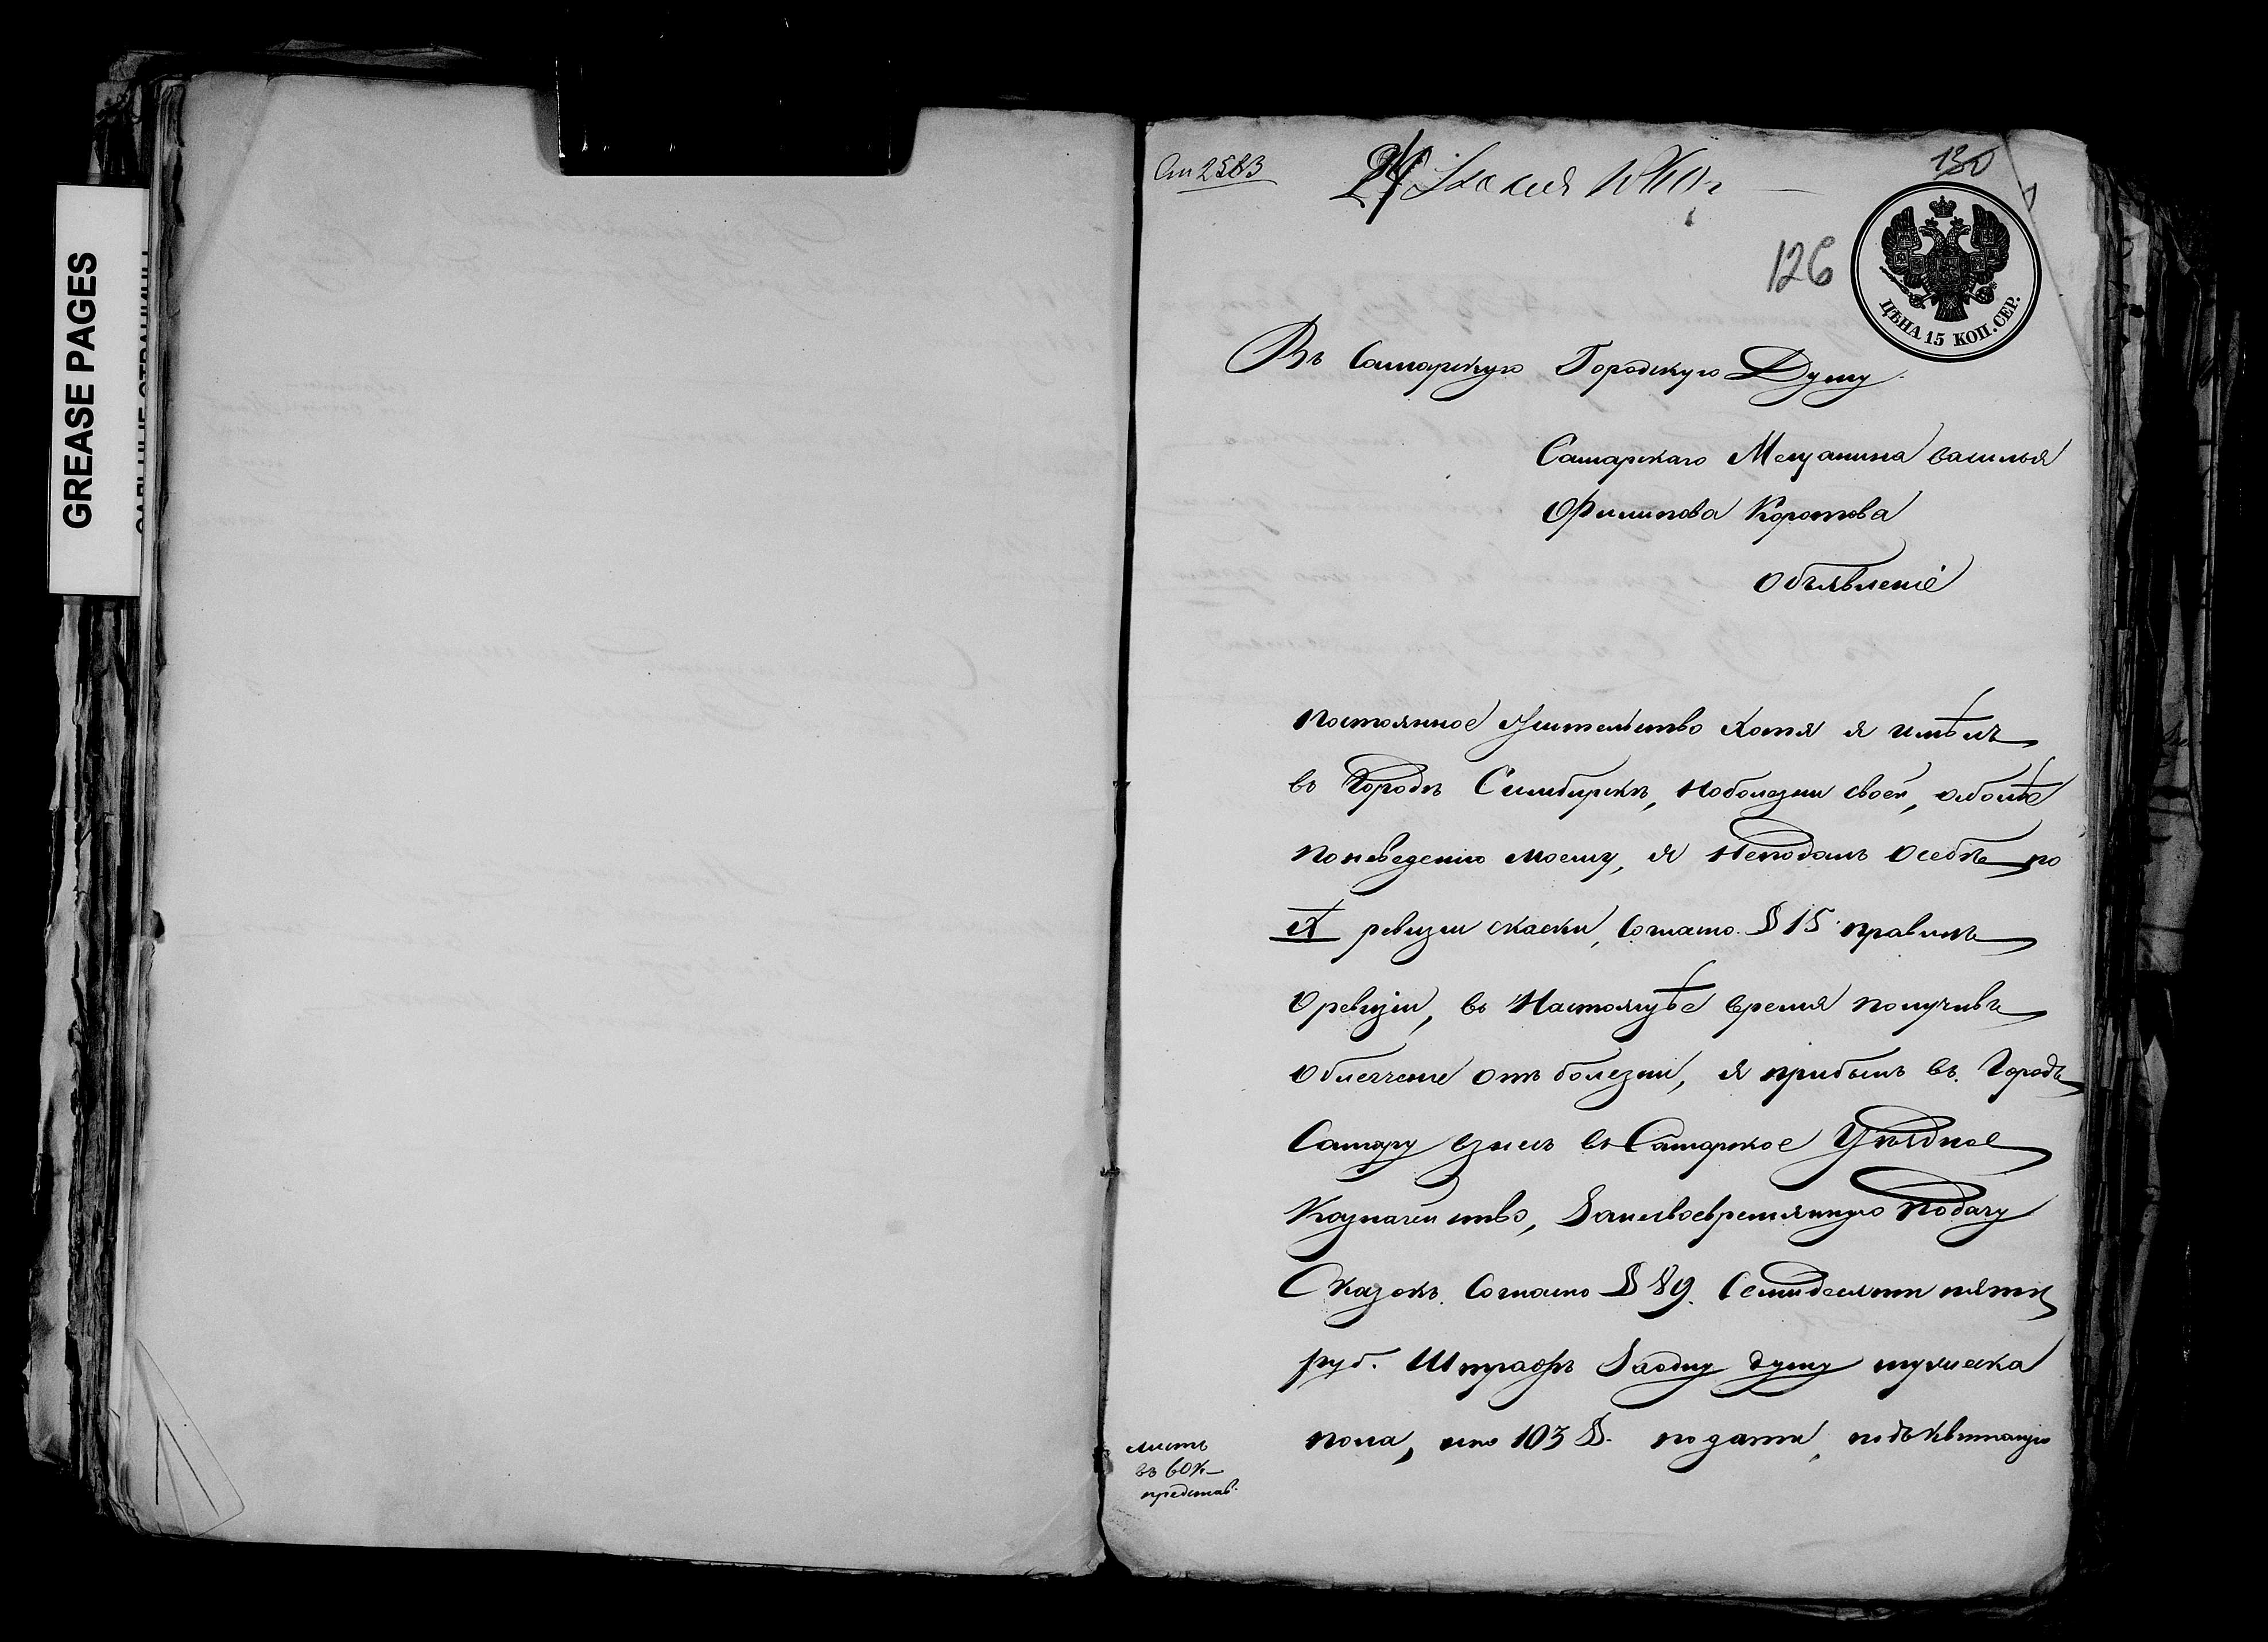 GREASE PAGES
130
126
ЦѢНА 15 КОП. СЕР.
Въ Самарскую Городскую Думу
Самарскаго Мещанина василья
Филипова Коротова
объявленіе
постоянное жительство хотя я имѣлъ
въ Городѣ Симбирскѣ, но болезни своей, аболѣе
поневедению моему, я неподалъ осебѣ по
X ревизии скаски, Согласно § 15 правилъ
Оревизіи, въ Настоящѣе время получивъ
облегчение отъ болезни, я прибылъ въ Городъ
Самару взнесъ въ Самарское Уѣздное
Казначейство, Занесвоевремянную подачу
Сказокъ Согласно § 89. Семидесяти пяти
руб. Штрафъ Заодну душу мужеска
пола, ипо 103 §. подати, подъ квитанцію
листъ
въ 60 к
представ.